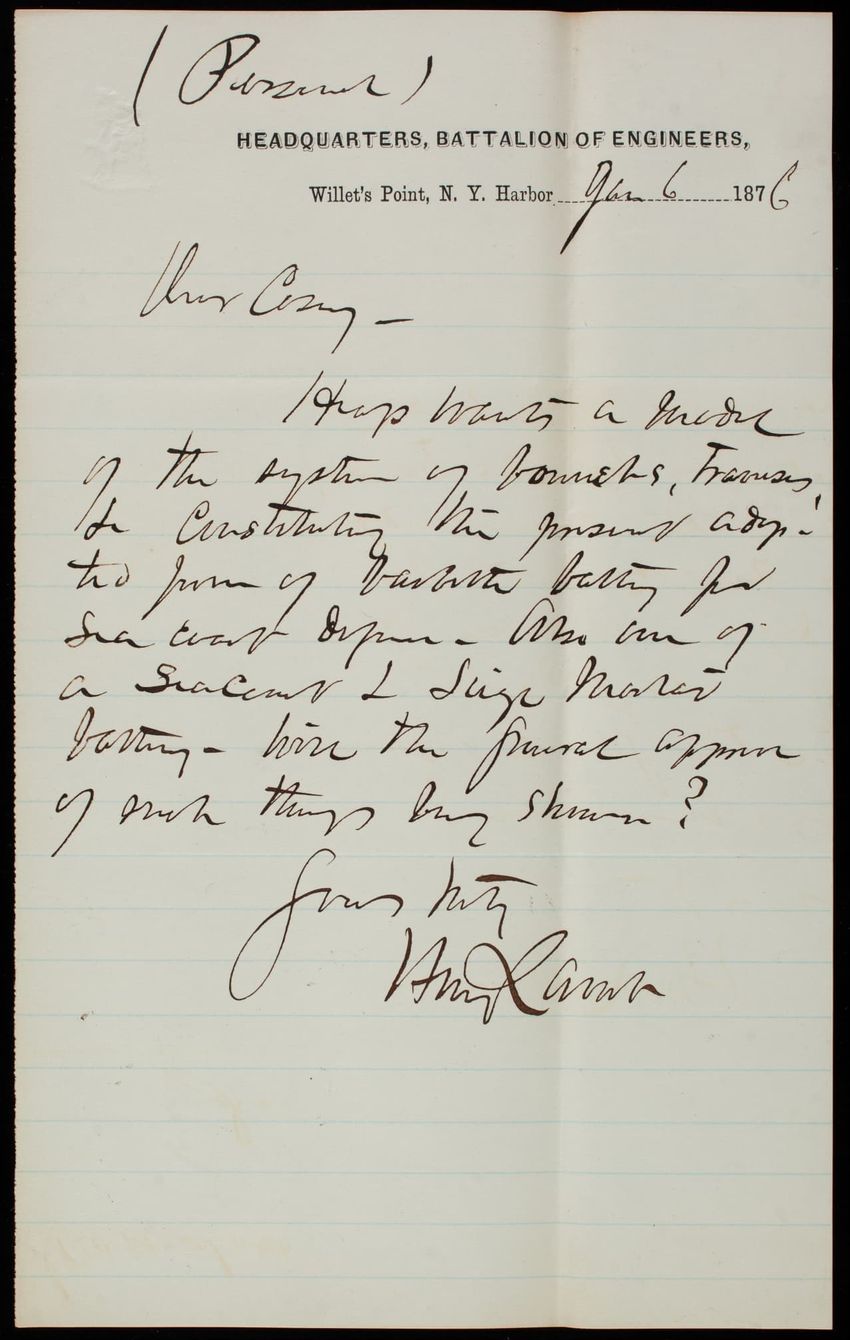 (Personal)
HEADQUARTERS, BATTALION OF ENGINEERS,
Willet's Point, N. Y. Harbor Jan 6 1876
Dear Casey -
Heap wants a model
of the system of bonnets, Traverses,
&c Constituting the present adop-
ted form of barbette battery for
Sea coast defense - Also one of
a Sea Coast & Siege Mortar
battery - Will the General approve
of such things being shown?
Yours truly
Henry L Abbot